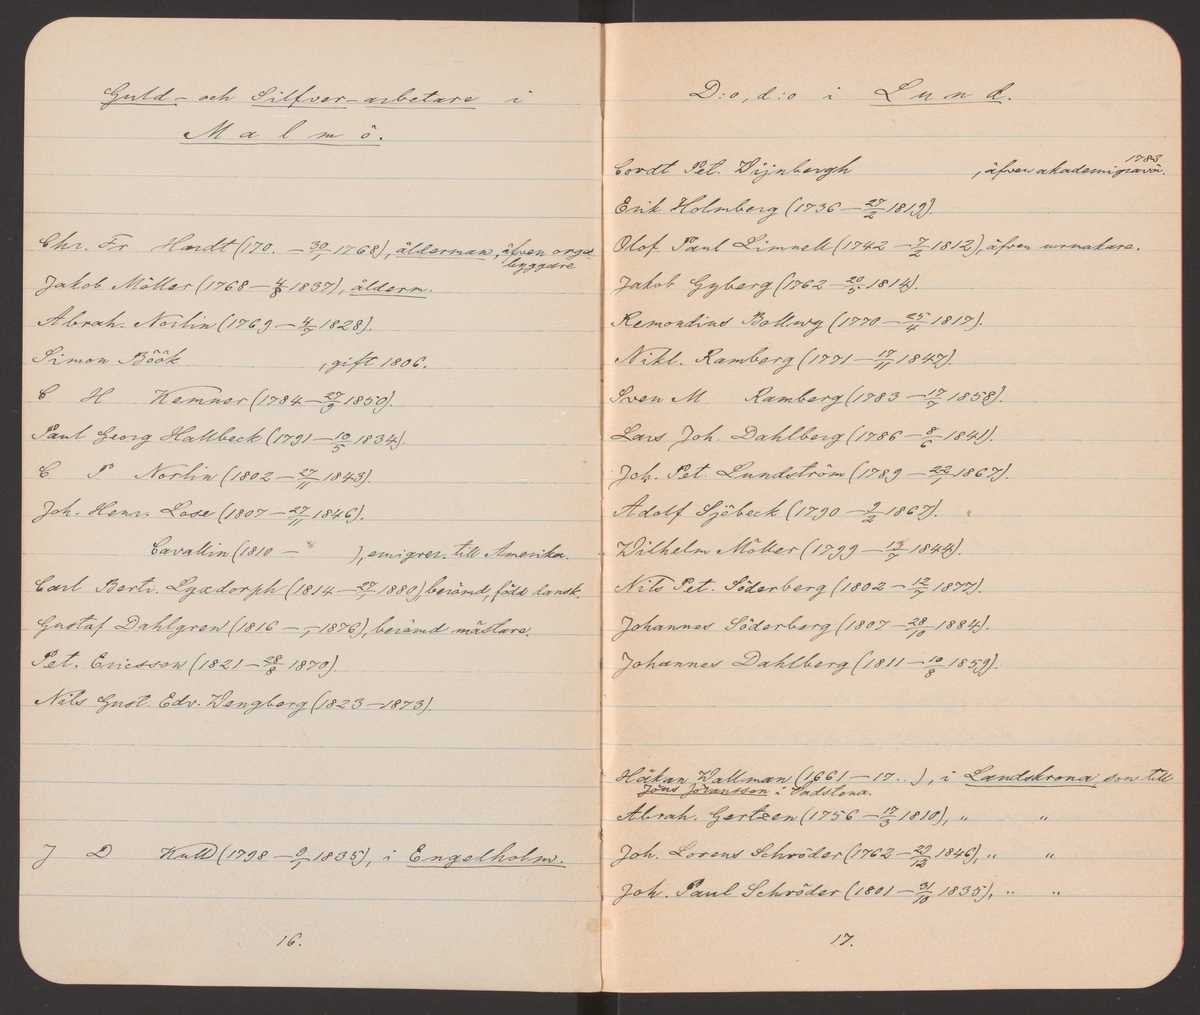 Guld- och Silfver-arbetare i
Malmö.
Chr. Fr Hardt (170. — 30/1 1768), ålderman, äfven orgel-
byggare
Jakob Möller (1768 — 4/8 1837), ålderm.
Abrah. Norlin (1769 — 4/7 1828).
Simon Böök , gift 1806.
C H Kemner (1784 — 27/9 1850).
Paul Georg Hallbeck (1791 — 10/5 1834).
C P Norlin (1802 — 27/11 1843).
Joh. Henr. Lose (1807 — 27/11 1846).
Cavallin (1810 — ), emigrer. till Amerika.
Carl Bertr. Lyxdorph (1814 — 27/1 1880), berömd, född dansk.
Gustaf Dahlgren (1816 — 1876), berömd mästare.
Pet. Ericsson (1821 — 28/8 1870).
Nils Gust. Edv. Wengberg (1823 — 1873).
J D Kull (1798 — 9/1 1835), i Engelholm.
16.
D:o, d:o i Lund.
Cordt Pet. Wijnbergh , äfven akademigravör. 1783
Erik Holmberg (1736 — 27/2 1819).
Olof Paul Limnell (1742 — 7/2 1812), äfven urmakare.
Jakob Gyberg (1762 — 20/5 1814).
Remondius Bollwg (1770 — 25/4 1817).
Nikl. Ramberg (1771 — 17/11 1847).
Sven M Ramberg (1783 — 17/7 1858).
Lars Joh. Dahlberg (1786 — 8/6 1841).
Joh. Pet. Lundström (1789 — 22/1 1867).
Adolf Sjöbeck (1790 — 9/2 1867).
Wilhelm Möller (1799 — 13/7 1844).
Nils Pet. Söderberg (1802 — 12/7 1877).
Johannes Söderberg (1807 — 28/10 1884).
Johannes Dahlberg (1811 — 10/8 1859).
Håkan Wallman (1661 — 17..), i Landskrona, son till
Jöns Johansson i Vadstena.
Abrah. Gertzen (1756 — 17/3 1810), " "
Joh. Lorens Schröder (1762 — 29/12 1846), " "
Joh. Paul Schröder (1801 — 31/10 1835), " "
17.